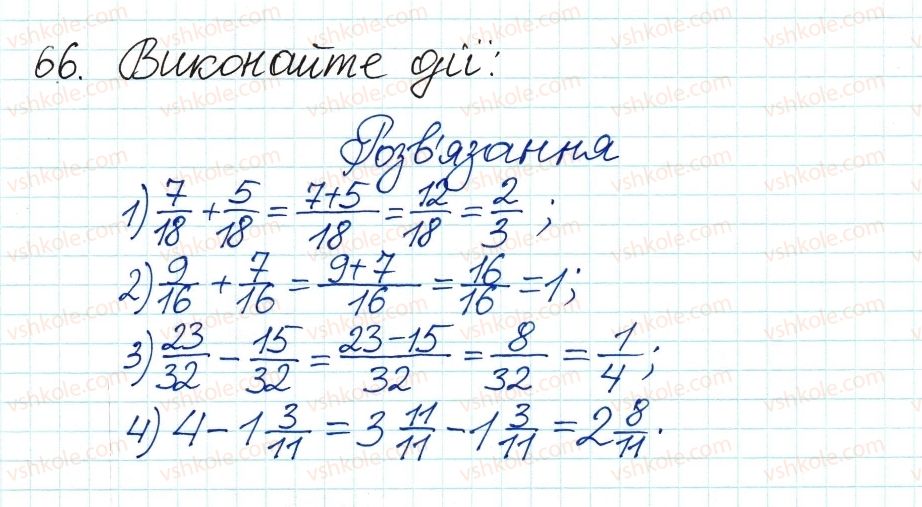 66. Виконайте дії:
Розв'язання
1) 7/18 + 5/18 = 7+5/18 = 12/18 = 2/3 ;
2) 9/16 + 7/16 = 9+7/16 = 16/16 = 1;
3) 23/32 - 15/32 = 23-15/32 = 8/32 = 1/4 ;
4) 4 - 1 3/11 = 3 11/11 - 1 3/11 = 2 8/11.